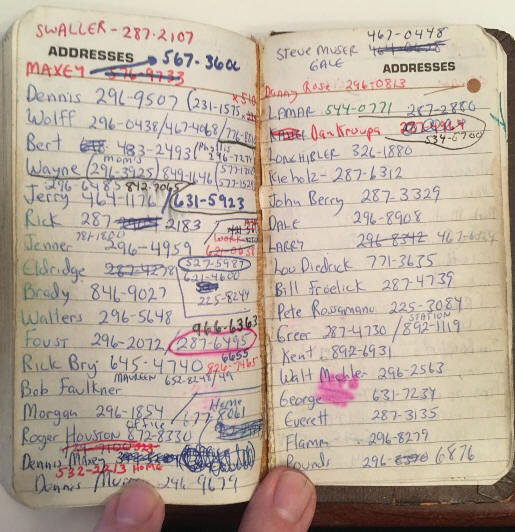 SWALLER - 287-2107
ADDRESSES
567-360
MAXEY 576-9733
Dennis 296-9507 (231-1575
Wolff 296-0438/467-4068/776-
Bert 433-2493 Phyllis
mom's 296-727
Wayne (296-3925) 849-1646
296-6485 842-7065
Jerry 464-1176 / 631-5923
Rick 287- 2183
781-1800
WORK
Jenner 296-4959 621-
Eldridge 287-4278 527-5987
621-4600
Brady 846-9027
225-8244
Walters 296-5648
966-6363
Foust 296-2072 / 287-6495
6655
Rick Bry 645-4740 826-7465
MAUREEN 652-8248/49
Bob Faulkner
Home
Morgan 296-1854 677-8061
office
Roger Houston 872-8330
Dennis Maxey
532-2213 Home
Dennis 296-9679
467-0448
STEVE MUSER
GALE
ADDRESSES
Danny Rose 296-0813
LAMAR 544-0771 287-2880
Dan Kroupa
534-6700
LON HIBLER 326-1880
Kieholz - 287-6312
John Berry 287-3329
DALE 296-8908
LARRY 296-8342 467-
Lou Diedrick 771-3635
Bill Froelick 287-4739
Pete Rossomano 225-3084
STATION
Greer 287-4730 / 892-1119
Kent 892-6931
Walt Mohler 296-2563
George 631-7234
Everett 287-3135
Flamm 296-8279
Pounds 296- 6876